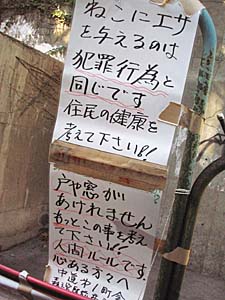 ねこにエサ
を与えるのは
犯罪行為と
同じです
住民の健康を
考えて下さい!!
戸や窓が
あけれません
もっとこの事を考え
て下さい!!
人間ルールです
心ある方々へ